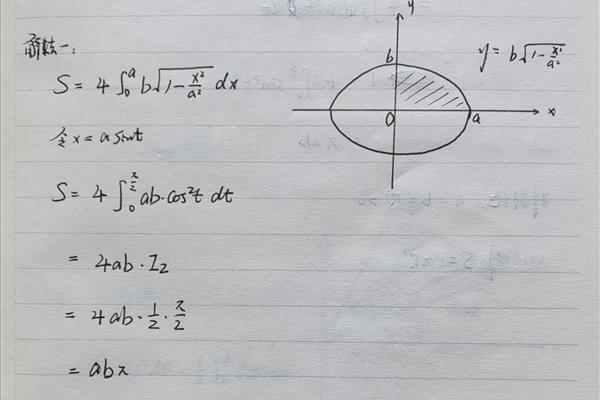 解法一:
S = 4 ∫₀ᵃ b√(1 - x²/a²) dx
令 x = a sint
S = 4 ∫₀^(π/2) ab·cos²t dt
= 4ab · I₂
= 4ab · 1/2 · π/2
= abπ
y
b
y = b√(1 - x²/a²)
0
a
x